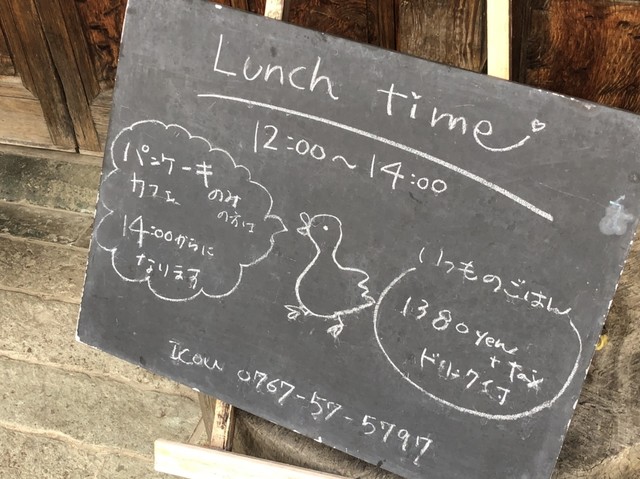 Lunch time
12:00～14:00
パンケーキ
カフェ のみ
の方は
14:00からに
なります
いつものごはん
1380yen
+tax
ドリンク付
Icou 0767-57-5797